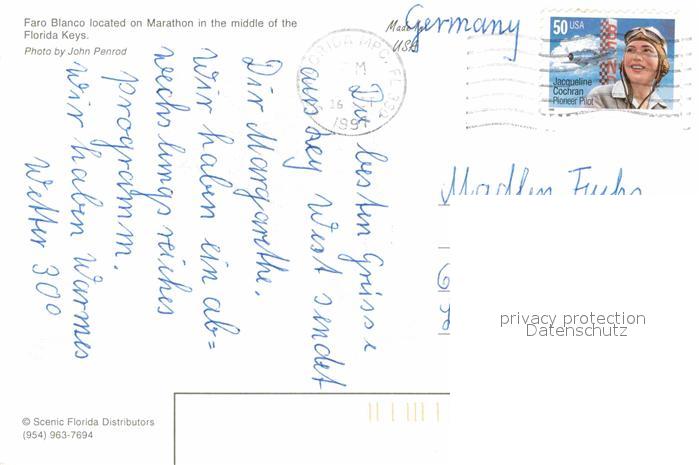 Faro Blanco located on Marathon in the middle of the
Florida Keys.
Photo by John Penrod
Made in
USA
Germany
50 USA
Jacqueline
Cochran
Pioneer Pilot
M
16
1997
Die besten Grüsse
aus Key West sendet
Dir Margarethe.
Wir haben ein ab=
wechslungsreiches
programm.
wir haben Warmes
Wetter 30°
Madlen Fuchs
privacy protection
Datenschutz
© Scenic Florida Distributors
(954) 963-7694